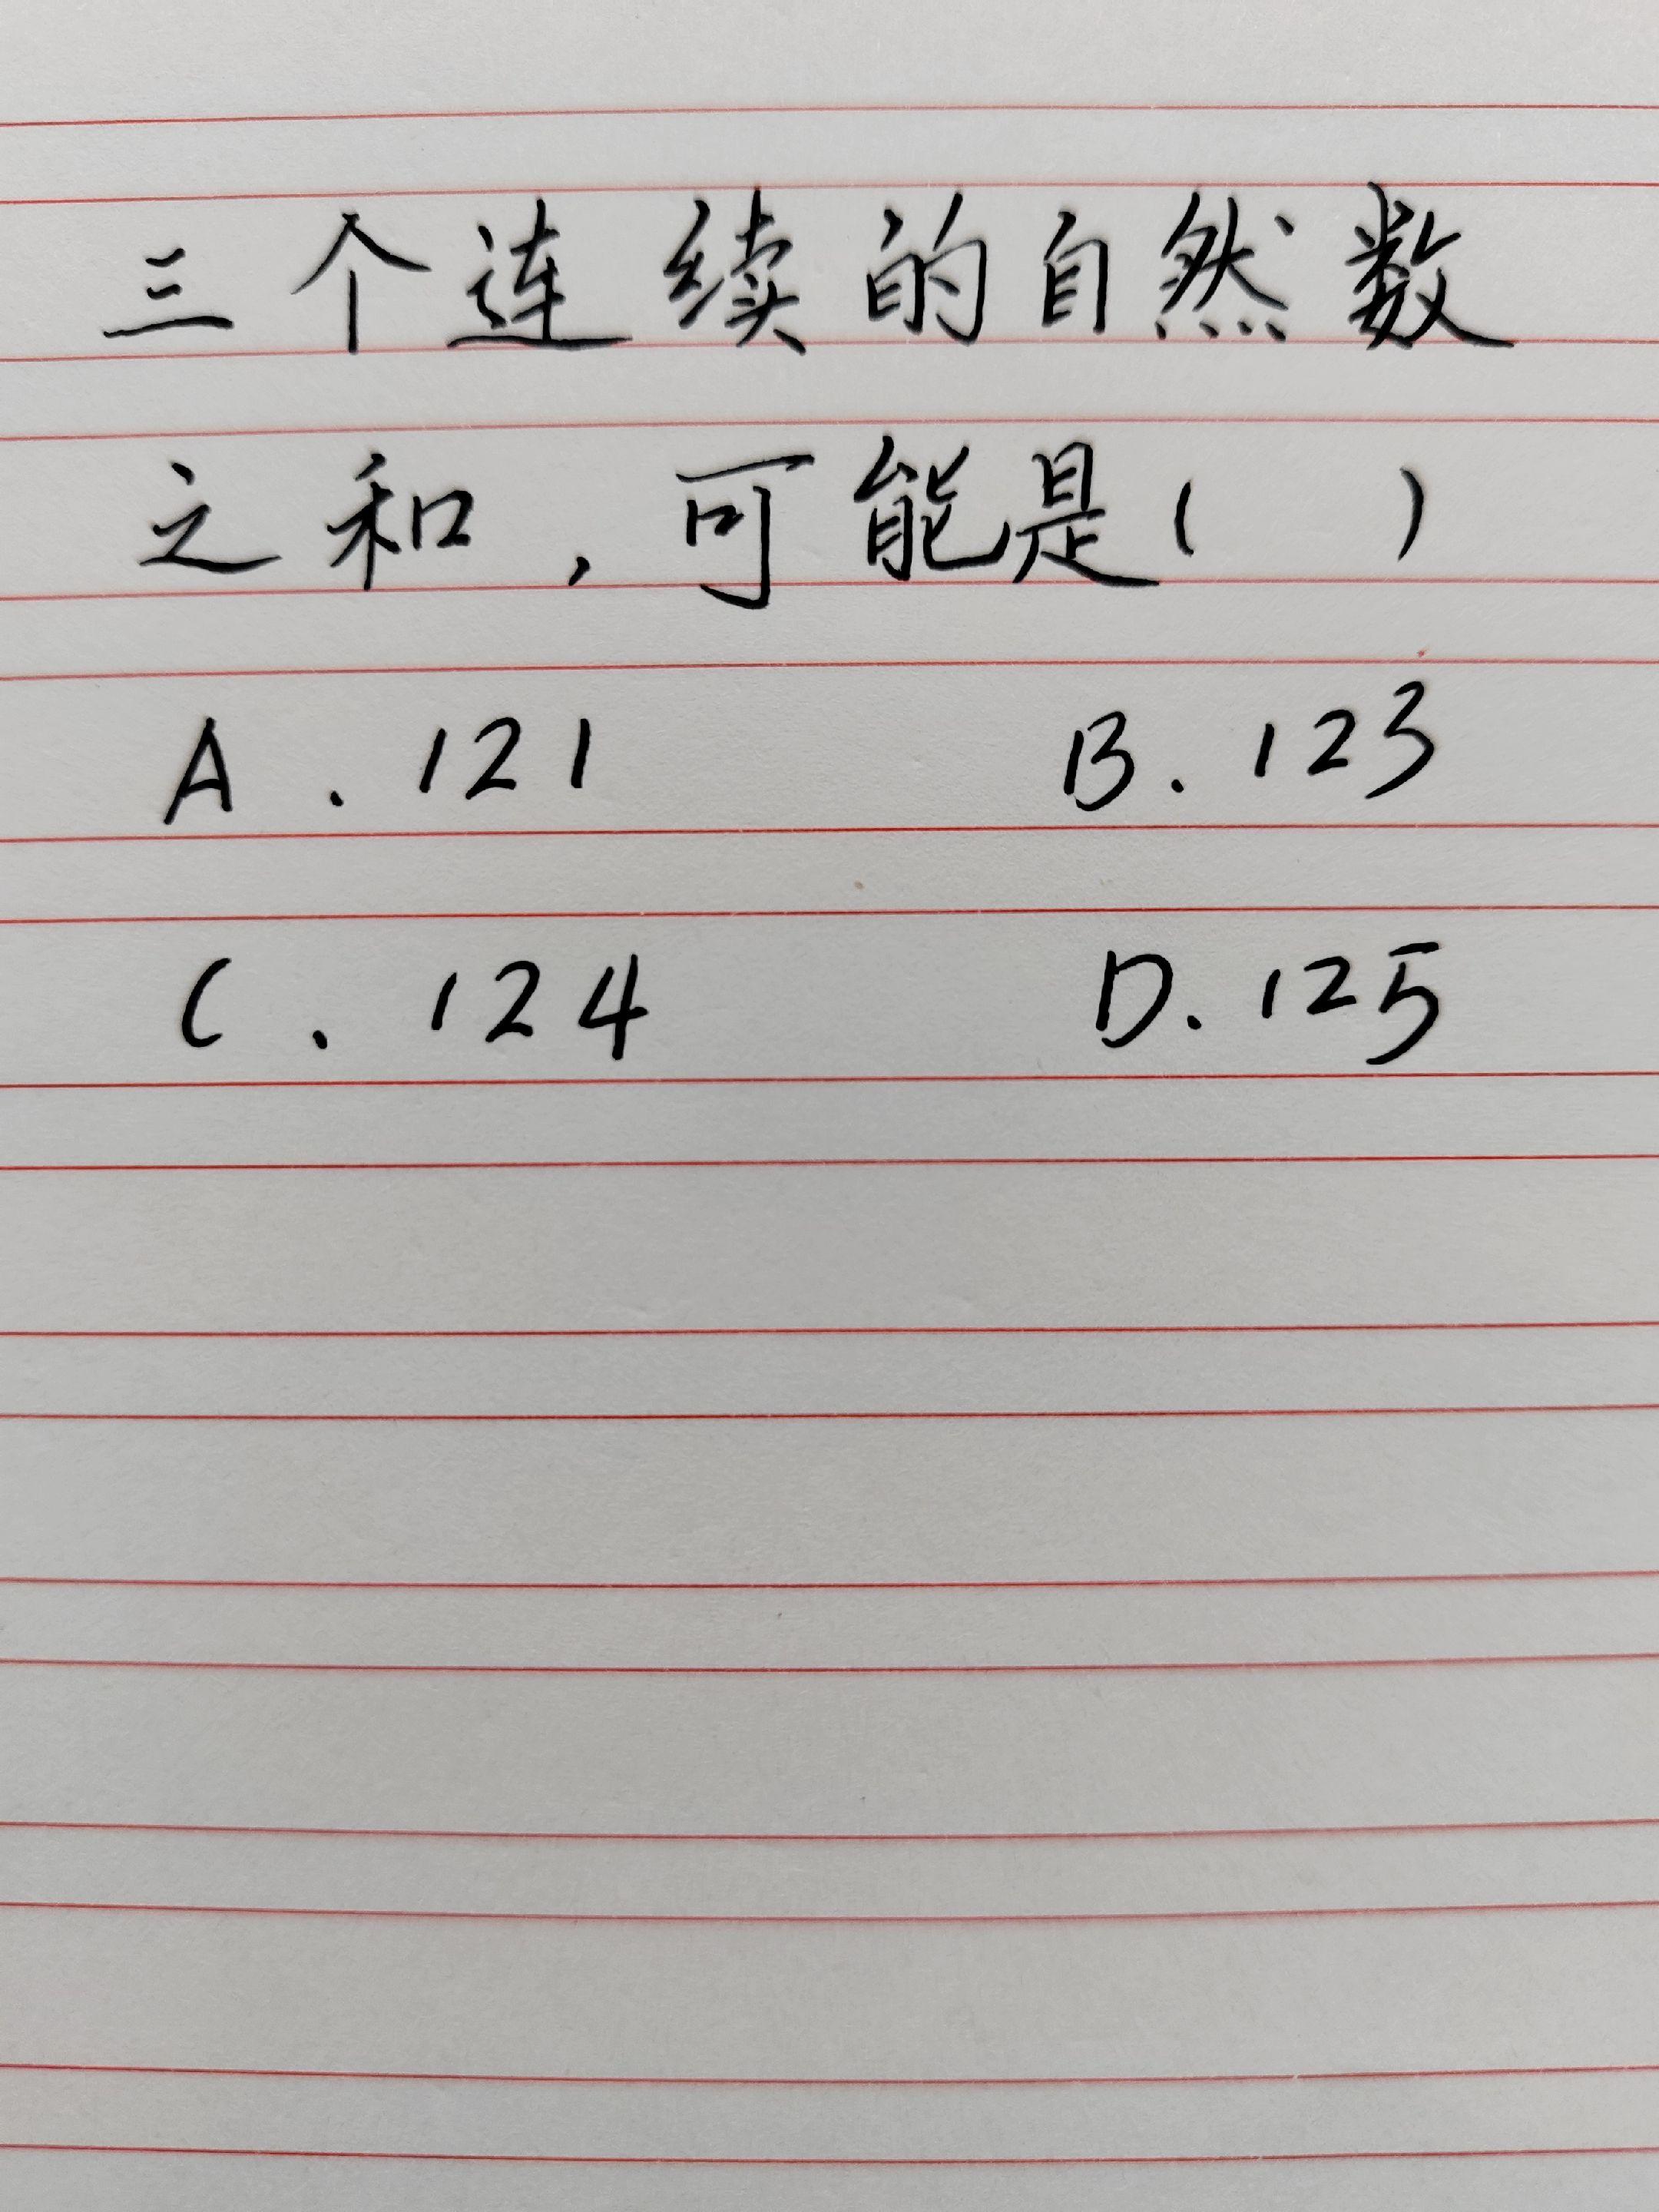 三个连续的自然数
之和,可能是( )
A.121 B.123
C.124 D.125